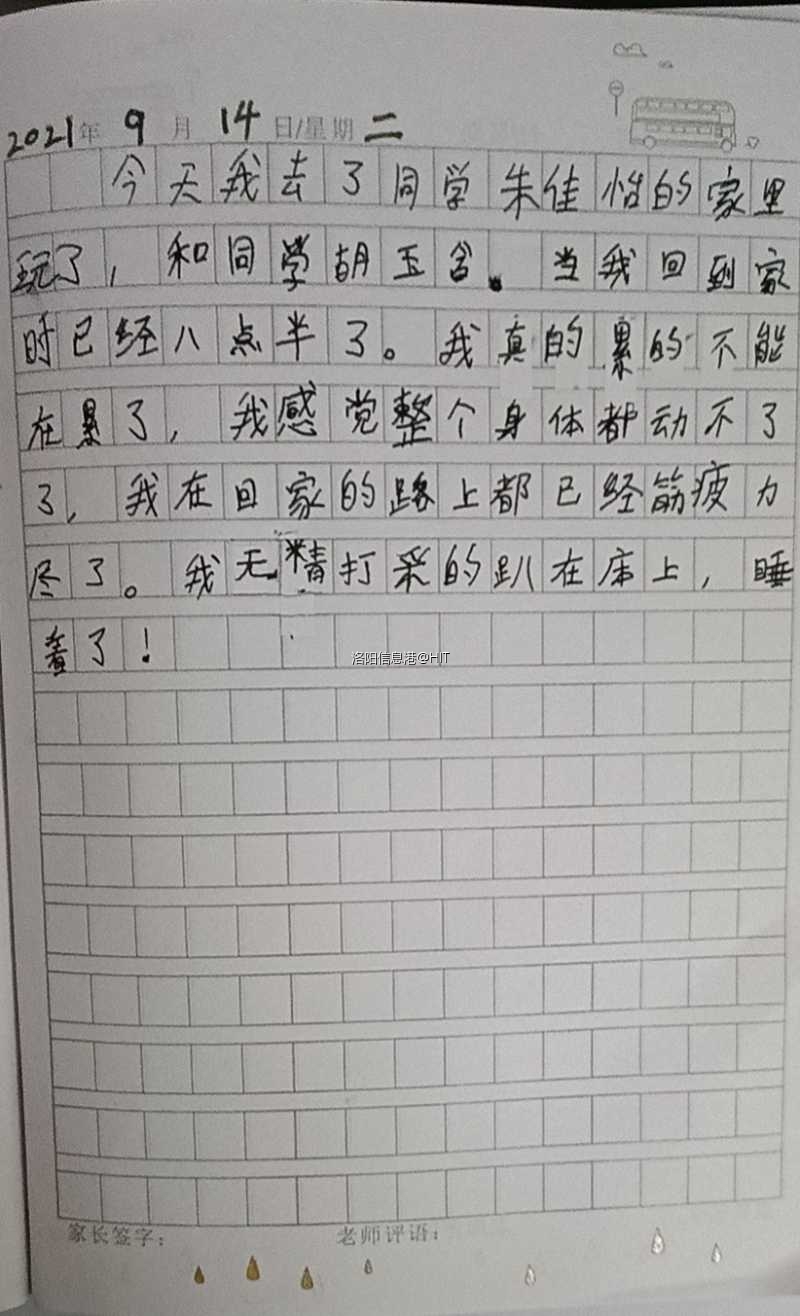 2021年 9月 14日/星期二
今天我去了同学朱佳怡的家里
玩了，和同学胡玉含。当我回到家
时已经八点半了。我真的累的不能
在累了，我感觉整个身体都动不了
了，我在回家的路上都已经筋疲力
尽了。我无精打采的趴在床上，睡
着了！
洛阳信息港@HJT
家长签字： 老师评语：